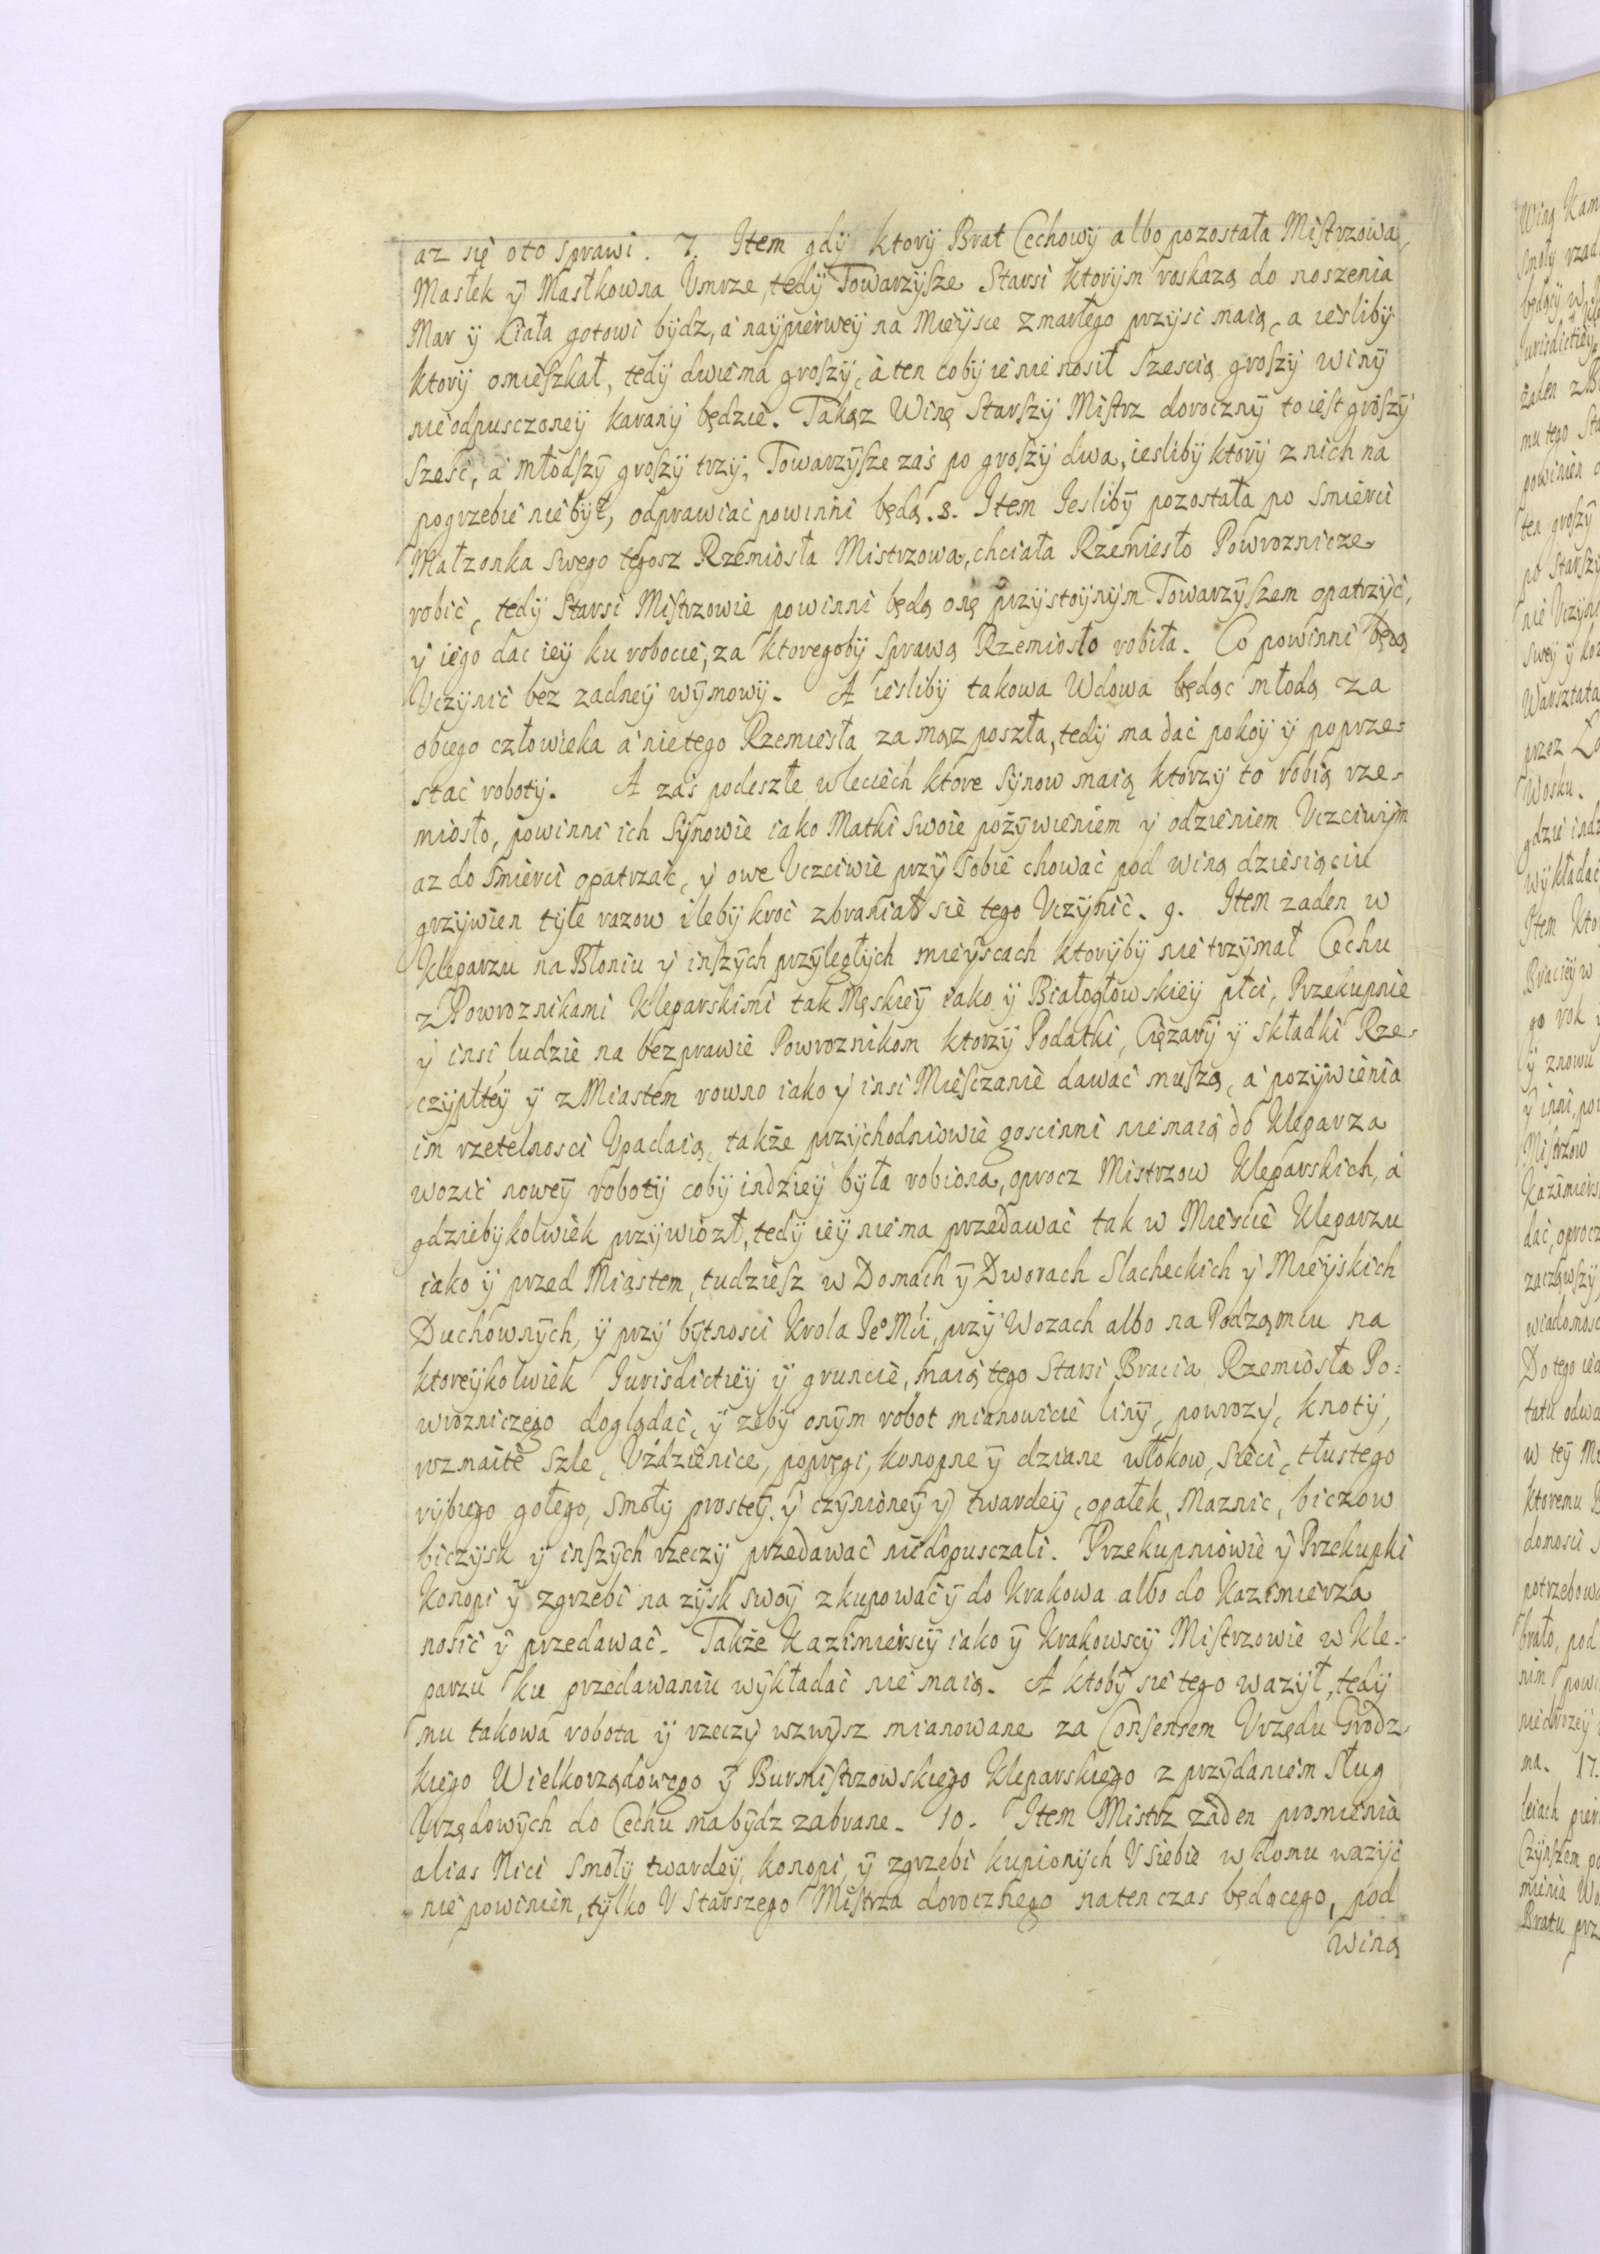 az się oto sprawi. 7. Item gdy ktory Brat Cechowy albo pozostała Mistrzowa,
Masłek y Masłkowna Vmrze, tedy Towarzysze Starsi ktorym roskazą do noszenia
Mar y Ciała gotowi bydz, a naypierwey na Mieysce zmarłego przysc maią, a iesliby
ktory omieszkał, tedy dwiema groszy, a ten coby ie nie nosił szescią groszy winy
nieodpusczoney karany będzie. Takąz Winę Starszy Mistrz doroczny to iest groszy
szesc, a młodszy groszy trzy, Towarzysze zas po groszy dwa, iesliby ktory z nich na
pogrzebie nie był, odprawiac powinni będą. 8. Item Iesliby pozostała po smierci
Małzonka swego tegosz Rzemiosła Mistrzowa, chciała Rzemiesło Powroznicze
robic, tedy Starsi Mistrzowie powinni będą onę przystoynym Towarzyszem opatrzyc,
y iego dac iey ku robocie, za ktoregoby sprawą Rzemiosło robiła. Co powinni będą
Vczynic bez zadney wymowy. A iesliby takowa Wdowa będąc młodą za
obcego człowieka a nie tego Rzemiesła za mąz poszła, tedy ma dac pokoy y poprze-
stac roboty. A zas podeszłe w leciech ktore synow maią ktorzy to robią rze-
miosło, powinni ich Synowie iako Matki swoie pożywieniem y odzieniem Vczciwym
az do smierci opatrzac, y owe Vczciwie przy sobie chowac pod winą dziesiąciu
grzywien tyle razow ileby kroc zbraniał się tego Vczynic. 9. Item zaden w
Kleparzu na Błoniu y inszych przyległych mieyscach ktoryby nie trzymał Cechu
z Powroznikami Kleparskimi tak Męskiey iako y Białogłowskiey płci, Przekupnie
y insi ludzie na bezprawie Powroznikom ktorzy Podatki, Cięzary y składki Rze-
czyplteу y z Miastem rowno iako y insi Miesczanie dawac muszą, a pozywienia
im rzetelnosci Vpadaią, także przychodniowie goscinni nie maią do Kleparza
wozic nowey roboty coby indziey była robiona, oprocz Mistrzow Kleparskich, a
gdziebykolwiek przywiozł, tedy iey nie ma przedawac tak w Miescie Kleparzu
iako y przed Miastem, tudziesz w Domach y Dworach Slacheckich y Mieyskich
Duchownych, y przy bytnosci Krola Ieo Mci, przy Wozach albo na Podzamciu na
ktoreykolwiek Iurisdictiey y gruncie, maią tego Starsi Bracia Rzemiosła Po-
wrozniczego doglądac, y zeby onym robot mianowicie liny, powrozy, knoty,
rozmaite szle, Vździenice, popręgi, konopne y dziane włokow, sieci, tłustego
rybiego gołego, smoły prostey y czynioney y twardey, opałek, maznic, biczow
biczysk y inszych rzeczy przedawac niedopusczali. Przekupniowie y Przekupki
Konopi y zgrzebi na zysk swoy zkupowac y do Krakowa albo do Kazimierza
nosic y przedawac. Także Kazimierscy iako y Krakowscy Mistrzowie w Kle-
parzu ku przedawaniu wykładac nie maią. A ktoby się tego wazył, tedy
mu takowa robota y rzeczy wzwysz mianowane za Consensem Vrzędu Grodz-
kiego Wielkorządowego y Burmistrzowskiego Kleparskiego z przydaniem Sług
Vrzędowych do Cechu ma bydz zabrane. 10. Item Mistrz zaden promienia
alias Nici smoły twardey, konopi, y zgrzebi kupionych V siebie w domu wazyc
nie powinien, tylko V Starszego Mistrza dorocznego na ten czas będącego, pod
winą